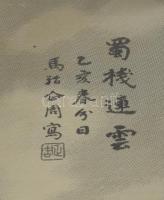 蜀棧連雲
乙亥春分日
馬企周寫